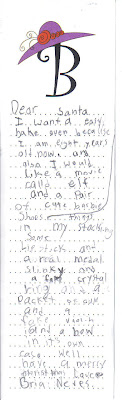 B
Dear Santa
I want a easy
bake oven because
I am eight years
old now. and
also I would
like a movie
called elf
and a pair
of cute barbie
Shoes things
in my stocking
Some
lip stick and
a real medal
slinky and
a crystal
ring and a
packet of gum
and a
violin
and a bow
in it's own
case well
have a merry
christmas Love
Bria